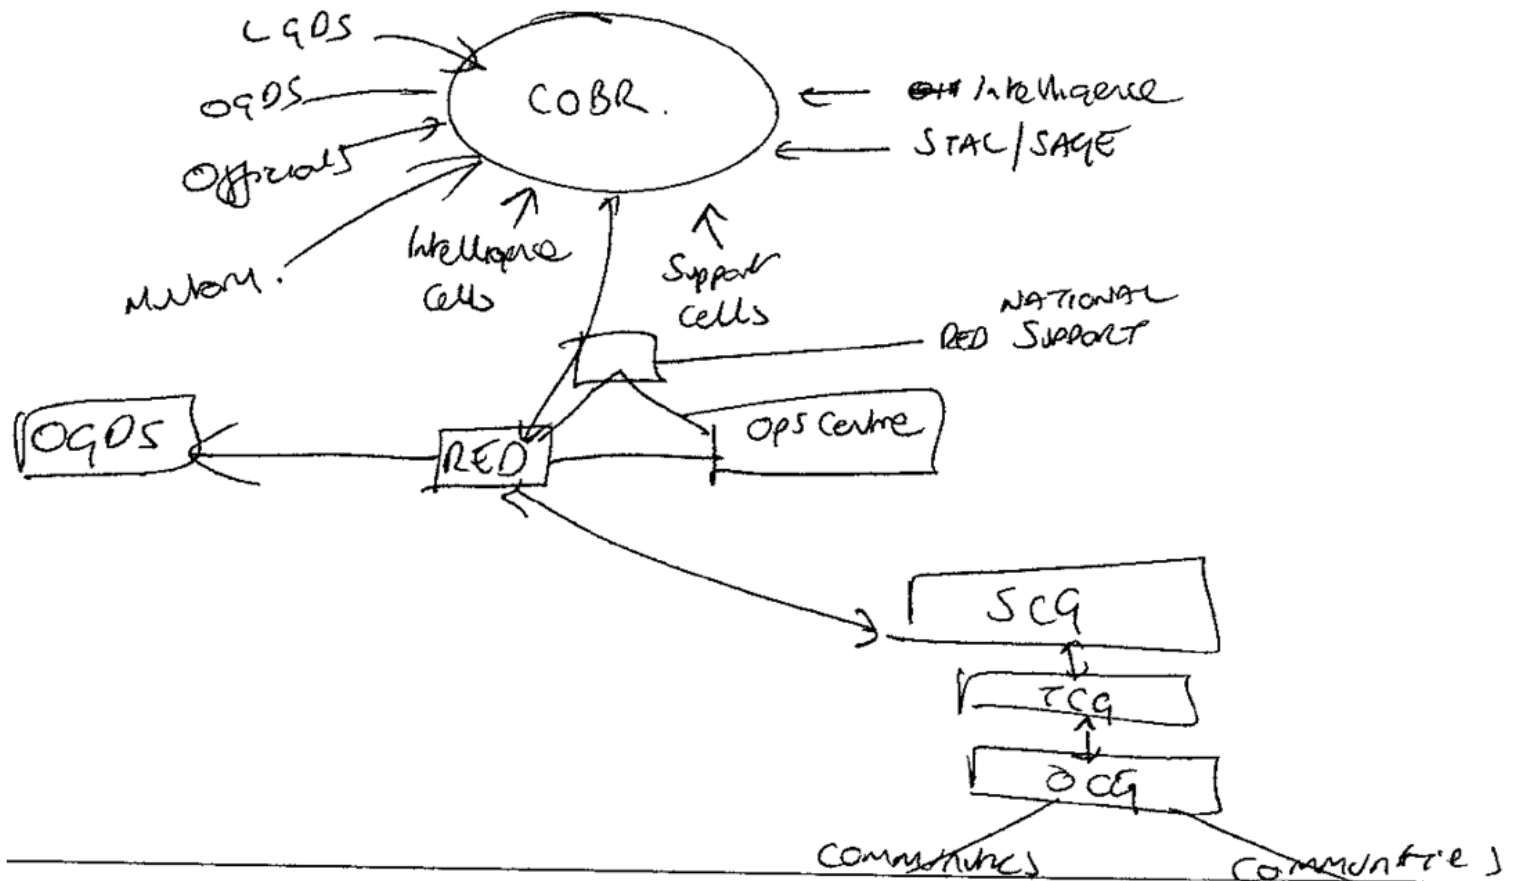 LGDS
OGDS
Officials
Military.
COBR.
Intelligence
STAC/SAGE
Intelligence
Cells
Support
Cells
NATIONAL
RED SUPPORT
OGDS
RED
OPS Centre
SCG
TCG
OCG
Communities
Communities